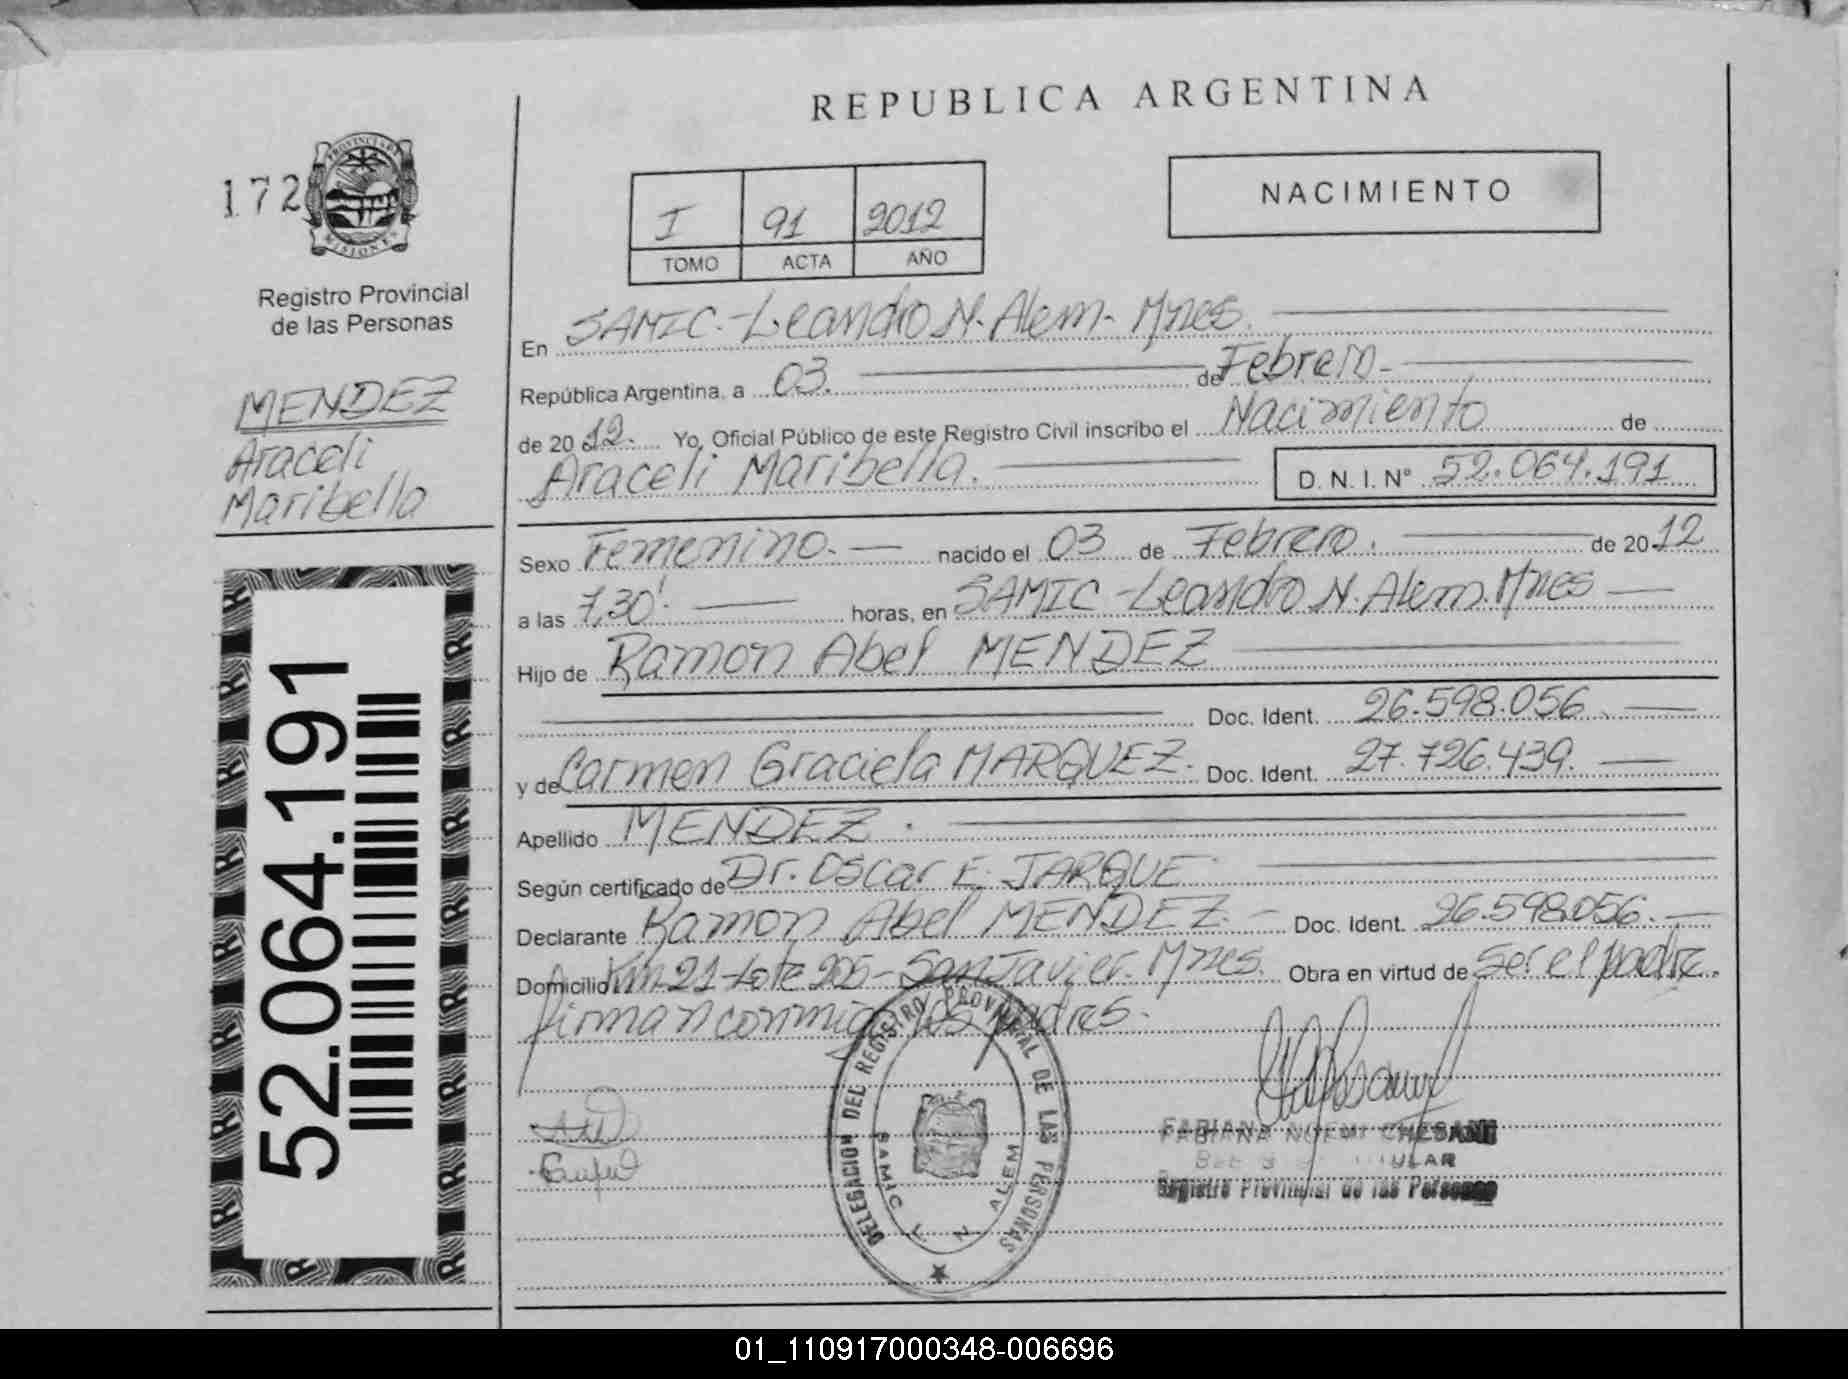 REPUBLICA ARGENTINA
172
PROVINCIA DE MISIONES
Registro Provincial
de las Personas
MENDEZ
Araceli
Maribella
52.064.191
I 91 2012
TOMO ACTA AÑO
NACIMIENTO
En SAMIC.-Leandro N. Alem- Mnes.
República Argentina, a 03. de Febrero-
de 2012. Yo, Oficial Público de este Registro Civil inscribo el Nacimiento de
Araceli Maribella. D. N. I. Nº 52.064.191
Sexo Femenino.- nacido el 03 de Febrero. de 2012
a las 7,30'. horas, en SAMIC -Leandro N. Alem. Mnes
Hijo de Ramon Abel MENDEZ
Doc. Ident. 26.598.056
y de Carmen Graciela MARQUEZ. Doc. Ident. 27.726.439.
Apellido MENDEZ.
Según certificado de Dr. Oscar E. JARQUE
Declarante Ramon Abel MENDEZ.- Doc. Ident. 26.598.056.-
Domicilio Km 21-Lote 205-San Javier. Mnes. Obra en virtud de Ser el padre.
firman conmigo los padres.
DELEGACION DEL REGISTRO PROVINCIAL DE LAS PERSONAS
SAMIC L. N. ALEM
FABIANA NOEMI CHESANI
Registro Provincial de las Personas
01_110917000348-006696